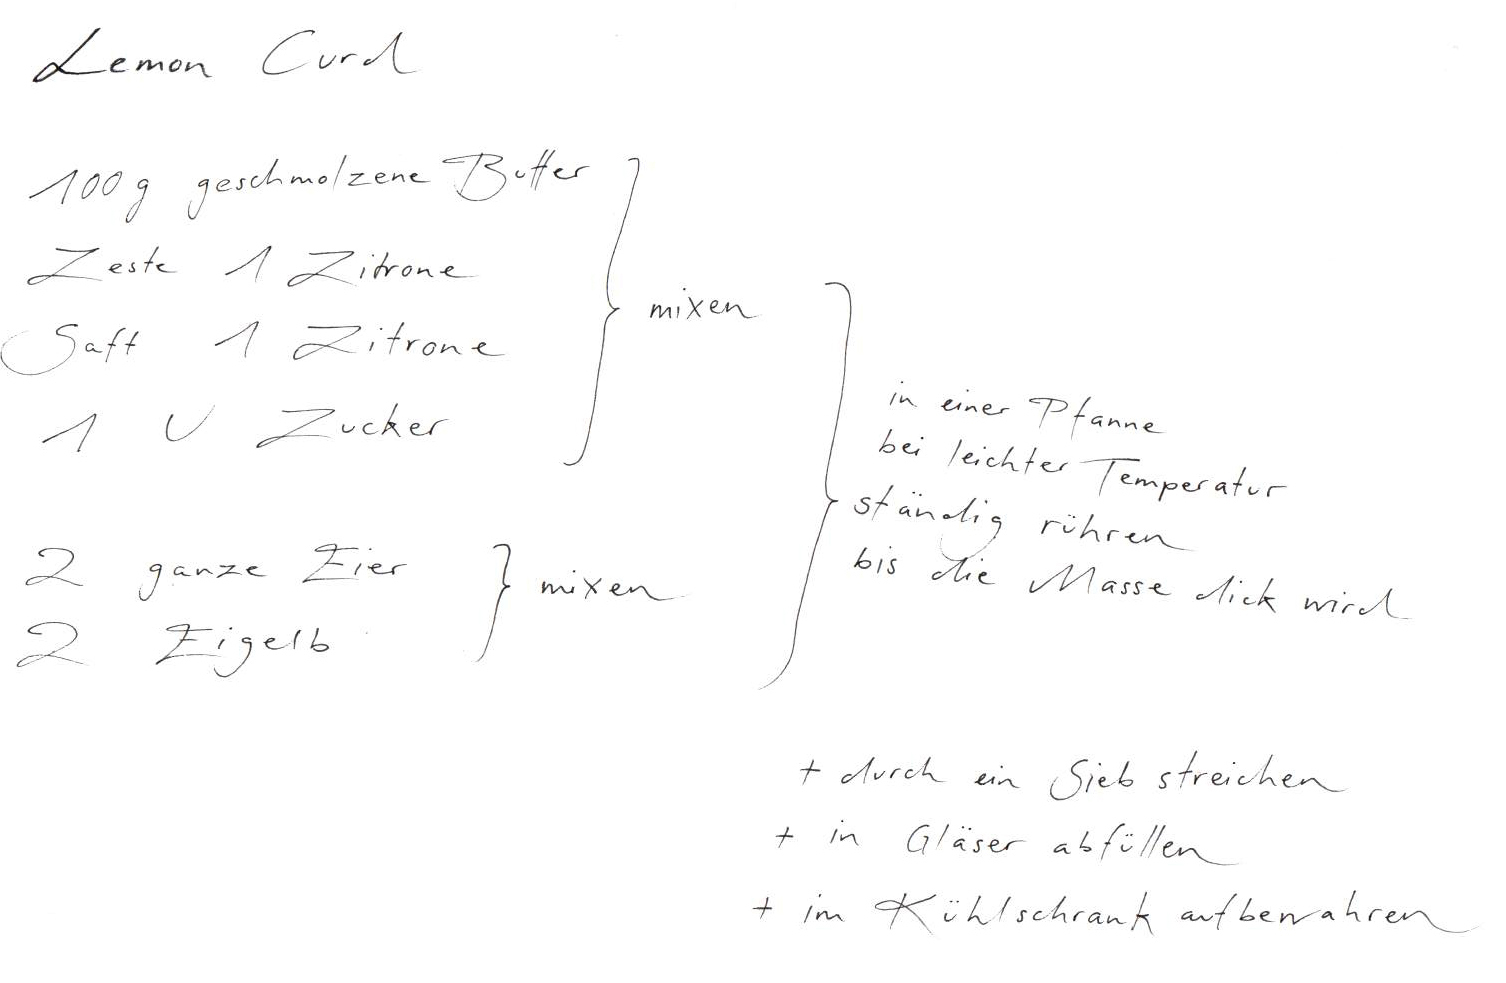 Lemon Curd
100g geschmolzene Butter
Zeste 1 Zitrone
Saft 1 Zitrone
1 U Zucker
mixen
2 ganze Eier
2 Eigelb
mixen
in einer Pfanne
bei leichter Temperatur
ständig rühren
bis die Masse dick wird
+ durch ein Sieb streichen
+ in Gläser abfüllen
+ im Kühlschrank aufbewahren